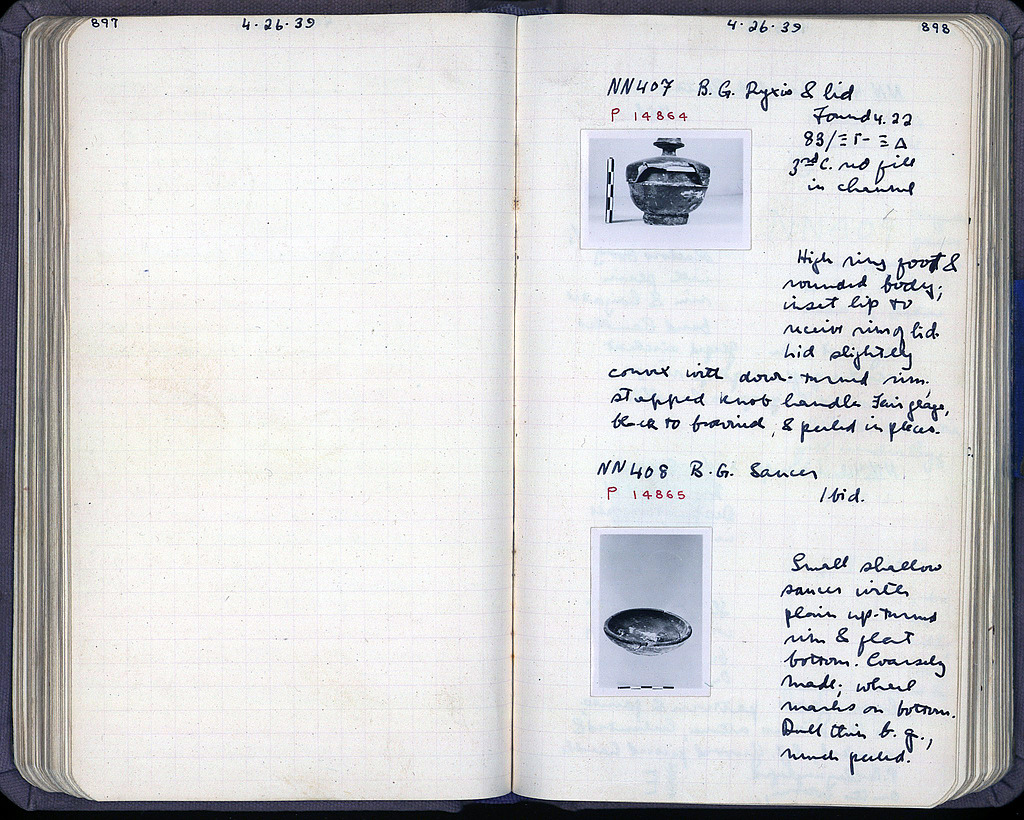 897
4·26·39
4·26·39
898
NN407 B.G. Pyxis & lid
P 14864
Found 4.22
83/ΞΓ-ΞΔ
3rd C. red fill
in channel
High ring foot &
rounded body;
inset lip to
receive rim of lid.
Lid slightly
convex with down-turned rim,
stepped knob handle. Fair glaze,
black to brownish, & peeled in places.
NN408 B.G. Saucer
P 14865
Ibid.
Small shallow
saucer with
plain up-turned
rim & flat
bottom. Coarsely
made; wheel
marks on bottom.
Dull thin b.g.,
much peeled.